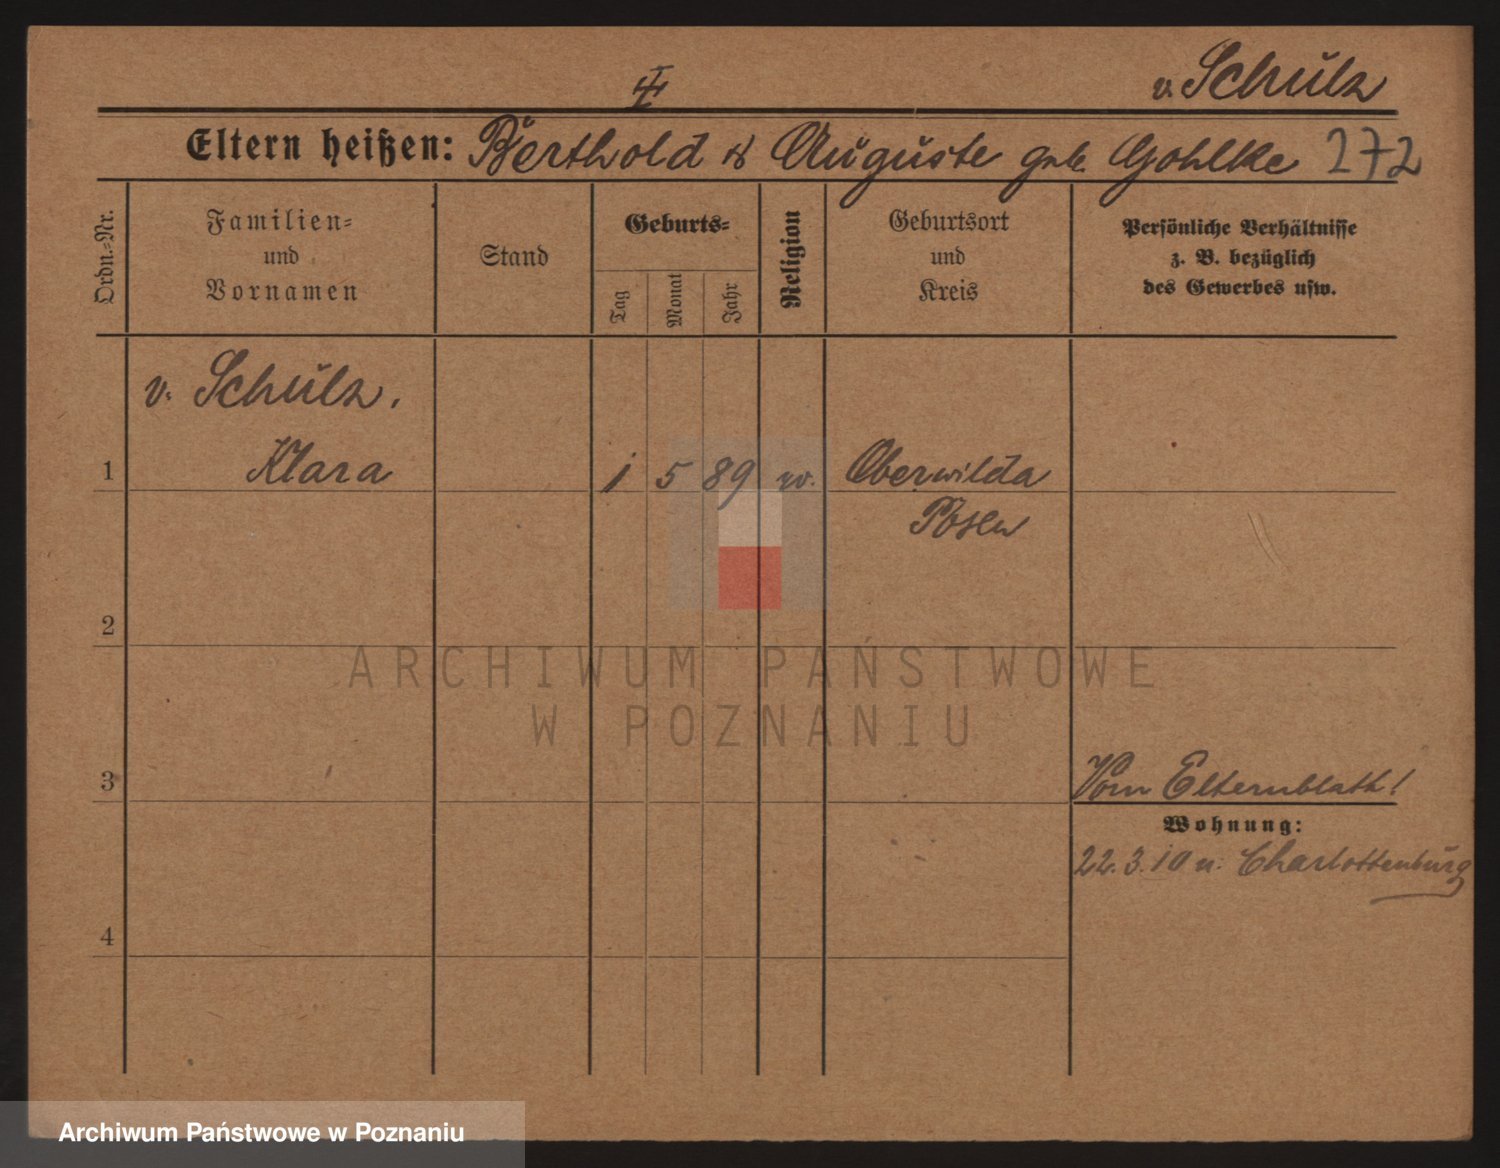 v. Schulz
Eltern heißen: Berthold & Auguste geb. Gohlke 272
Ordn.-Nr.
Familien-
und
Vornamen
Stand
Geburts-
Tag
Monat
Jahr
Religion
Geburtsort
und
Kreis
Persönliche Verhältnisse
z. B. bezüglich
des Gewerbes usw.
v. Schulz.
1 Klara 1 5 89 ev. Oberwilda
Posen
2
ARCHIWUM PAŃSTWOWE
W POZNANIU
3 Vom Elternblatt!
Wohnung:
22.3.10 n. Charlottenburg
4
Archiwum Państwowe w Poznaniu